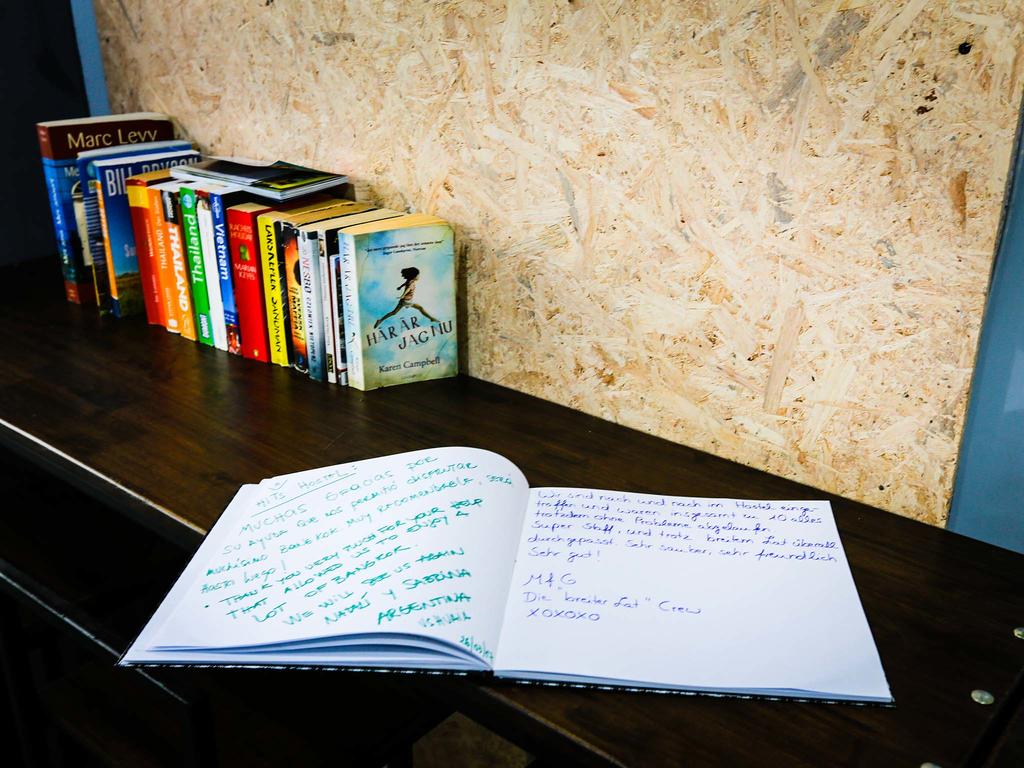 Marc Levy
BILL BRYSON
THAILAND
Thailand
Vietnam
MARIAN KEYES
LARS KEPLER SANDMAN
HÄR ÄR
JAG NU
Karen Campbell
HITS HOSTEL:
MUCHAS GRACIAS POR
SU AYUDA QUE NOS PERMITIÓ DISFRUTAR
MUCHÍSIMO BANGKOK MUY RECOMENDABLE.
HASTA LUEGO!
• THANK YOU VERY MUCH FOR YOUR HELP
THAT ALLOWED US TO ENJOY A
LOT OF BANGKOK.
WE WILL SEE US AGAIN
Y SABRINA
ARGENTINA
USHUAIA
Wir sind nach und nach im Hostel einge-
troffen und waren insgesamt zu 10 alles
trotzdem ohne Probleme abgelaufen
Super Staff, und trotz breitem Lat überall
durchgepasst. Sehr sauber, sehr freundlich
Sehr gut!
MfG
Die "breiter Lat" Crew
XOXOXO